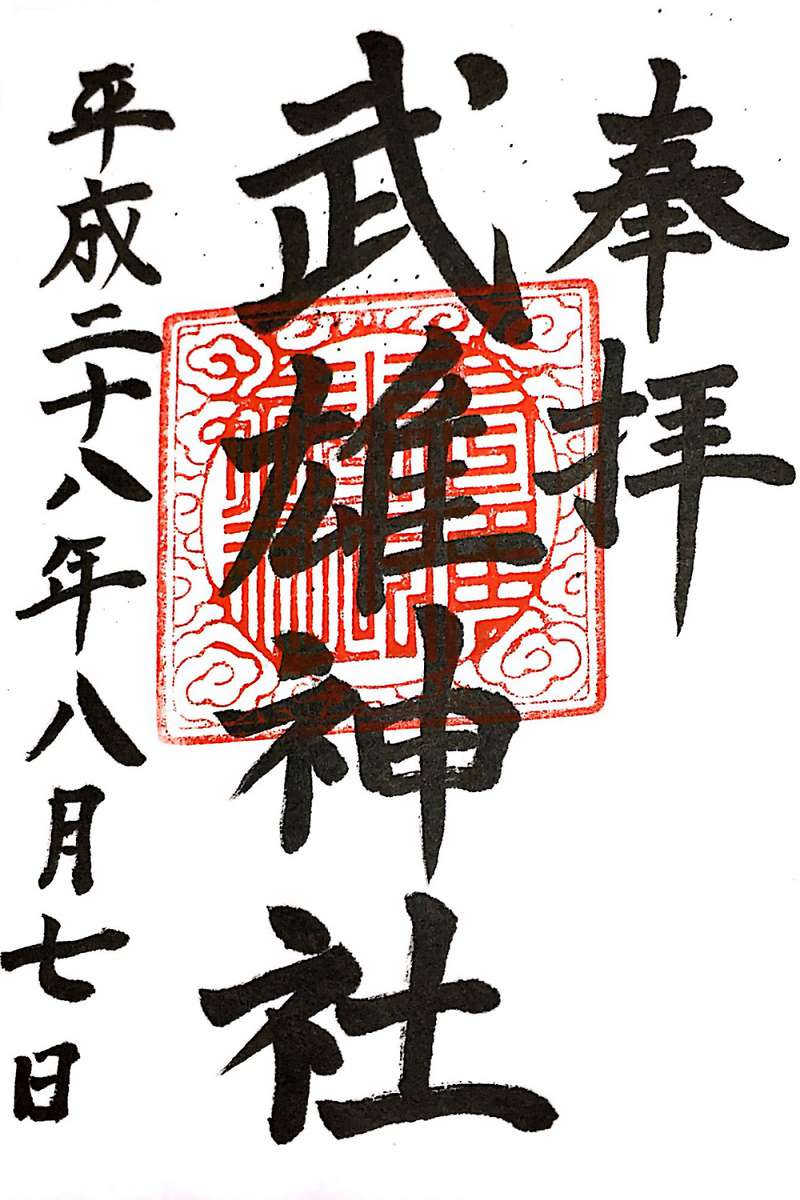 奉拝
武雄神社
平成二十八年八月七日